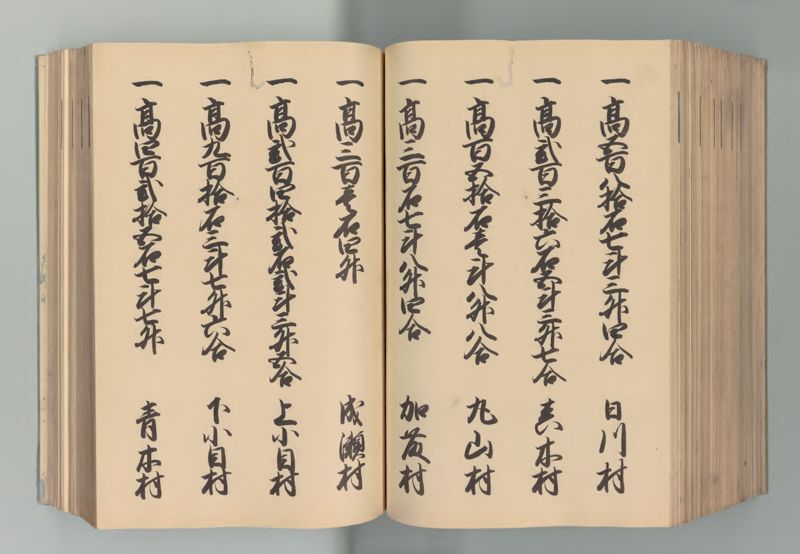 一 高五百八拾石七斗三升四合 日川村
一 高弐百三拾六石五斗三升七合 青木村
一 高百五拾石壱斗八升八合 丸山村
一 高三百石七斗八升四合 加茂村
一 高三百壱石四升 成瀬村
一 高弐百四拾弐石弐斗三升五合 上小目村
一 高九百拾石三斗七升六合 下小目村
一 高四百弐拾五石七斗七升 青木村